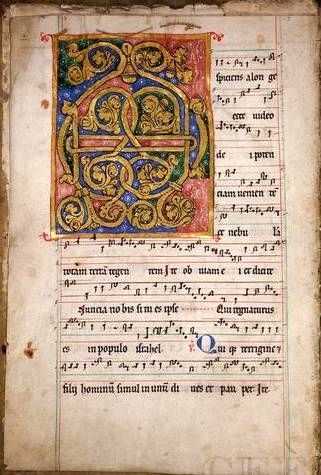 A
spiciens a lon ge
ecce uideo
de i poten
ciam uenien te
et nebu lā
totam terrā tegen tem Ite ob uiam e i et dicite
Nuncia no bis si tu es ipse Qui regnaturus
es in populo israhel. Qui q terrigine &
filij hominū simul in unū di ues et pau per. Ite